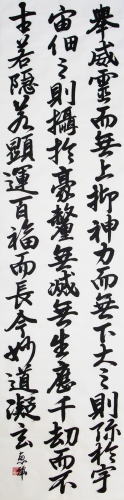 舉威靈而無上抑神力而無下大之則弥於宇
宙細之則攝於豪釐無滅無生歷千劫而不
古若隱若顯運百福而長今妙道凝玄